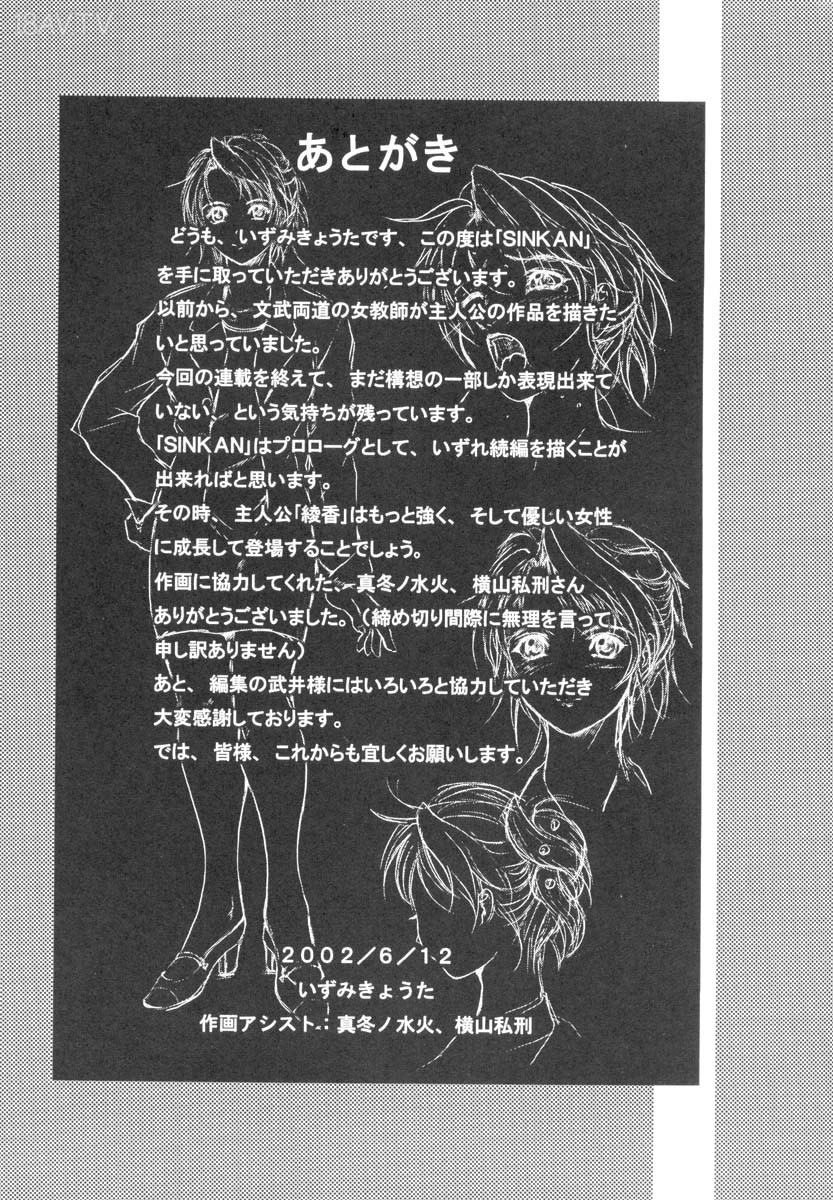 18AV.TV
あとがき
どうも、いずみきょうたです、この度は「SINKAN」
を手に取っていただきありがとうございます。
以前から、文武両道の女教師が主人公の作品を描きた
いと思っていました。
今回の連載を終えて、まだ構想の一部しか表現出来て
いない、という気持ちが残っています。
「SINKAN」はプロローグとして、いずれ続編を描くことが
出来ればと思います。
その時、主人公「綾香」はもっと強く、そして優しい女性
に成長して登場することでしょう。
作画に協力してくれた、真冬ノ水火、横山私刑さん
ありがとうございました。（締め切り間際に無理を言って
申し訳ありません）
あと、編集の武井様にはいろいろと協力していただき
大変感謝しております。
では、皆様、これからも宜しくお願いします。
２００２／６／１２
いずみきょうた
作画アシスト：真冬ノ水火、横山私刑